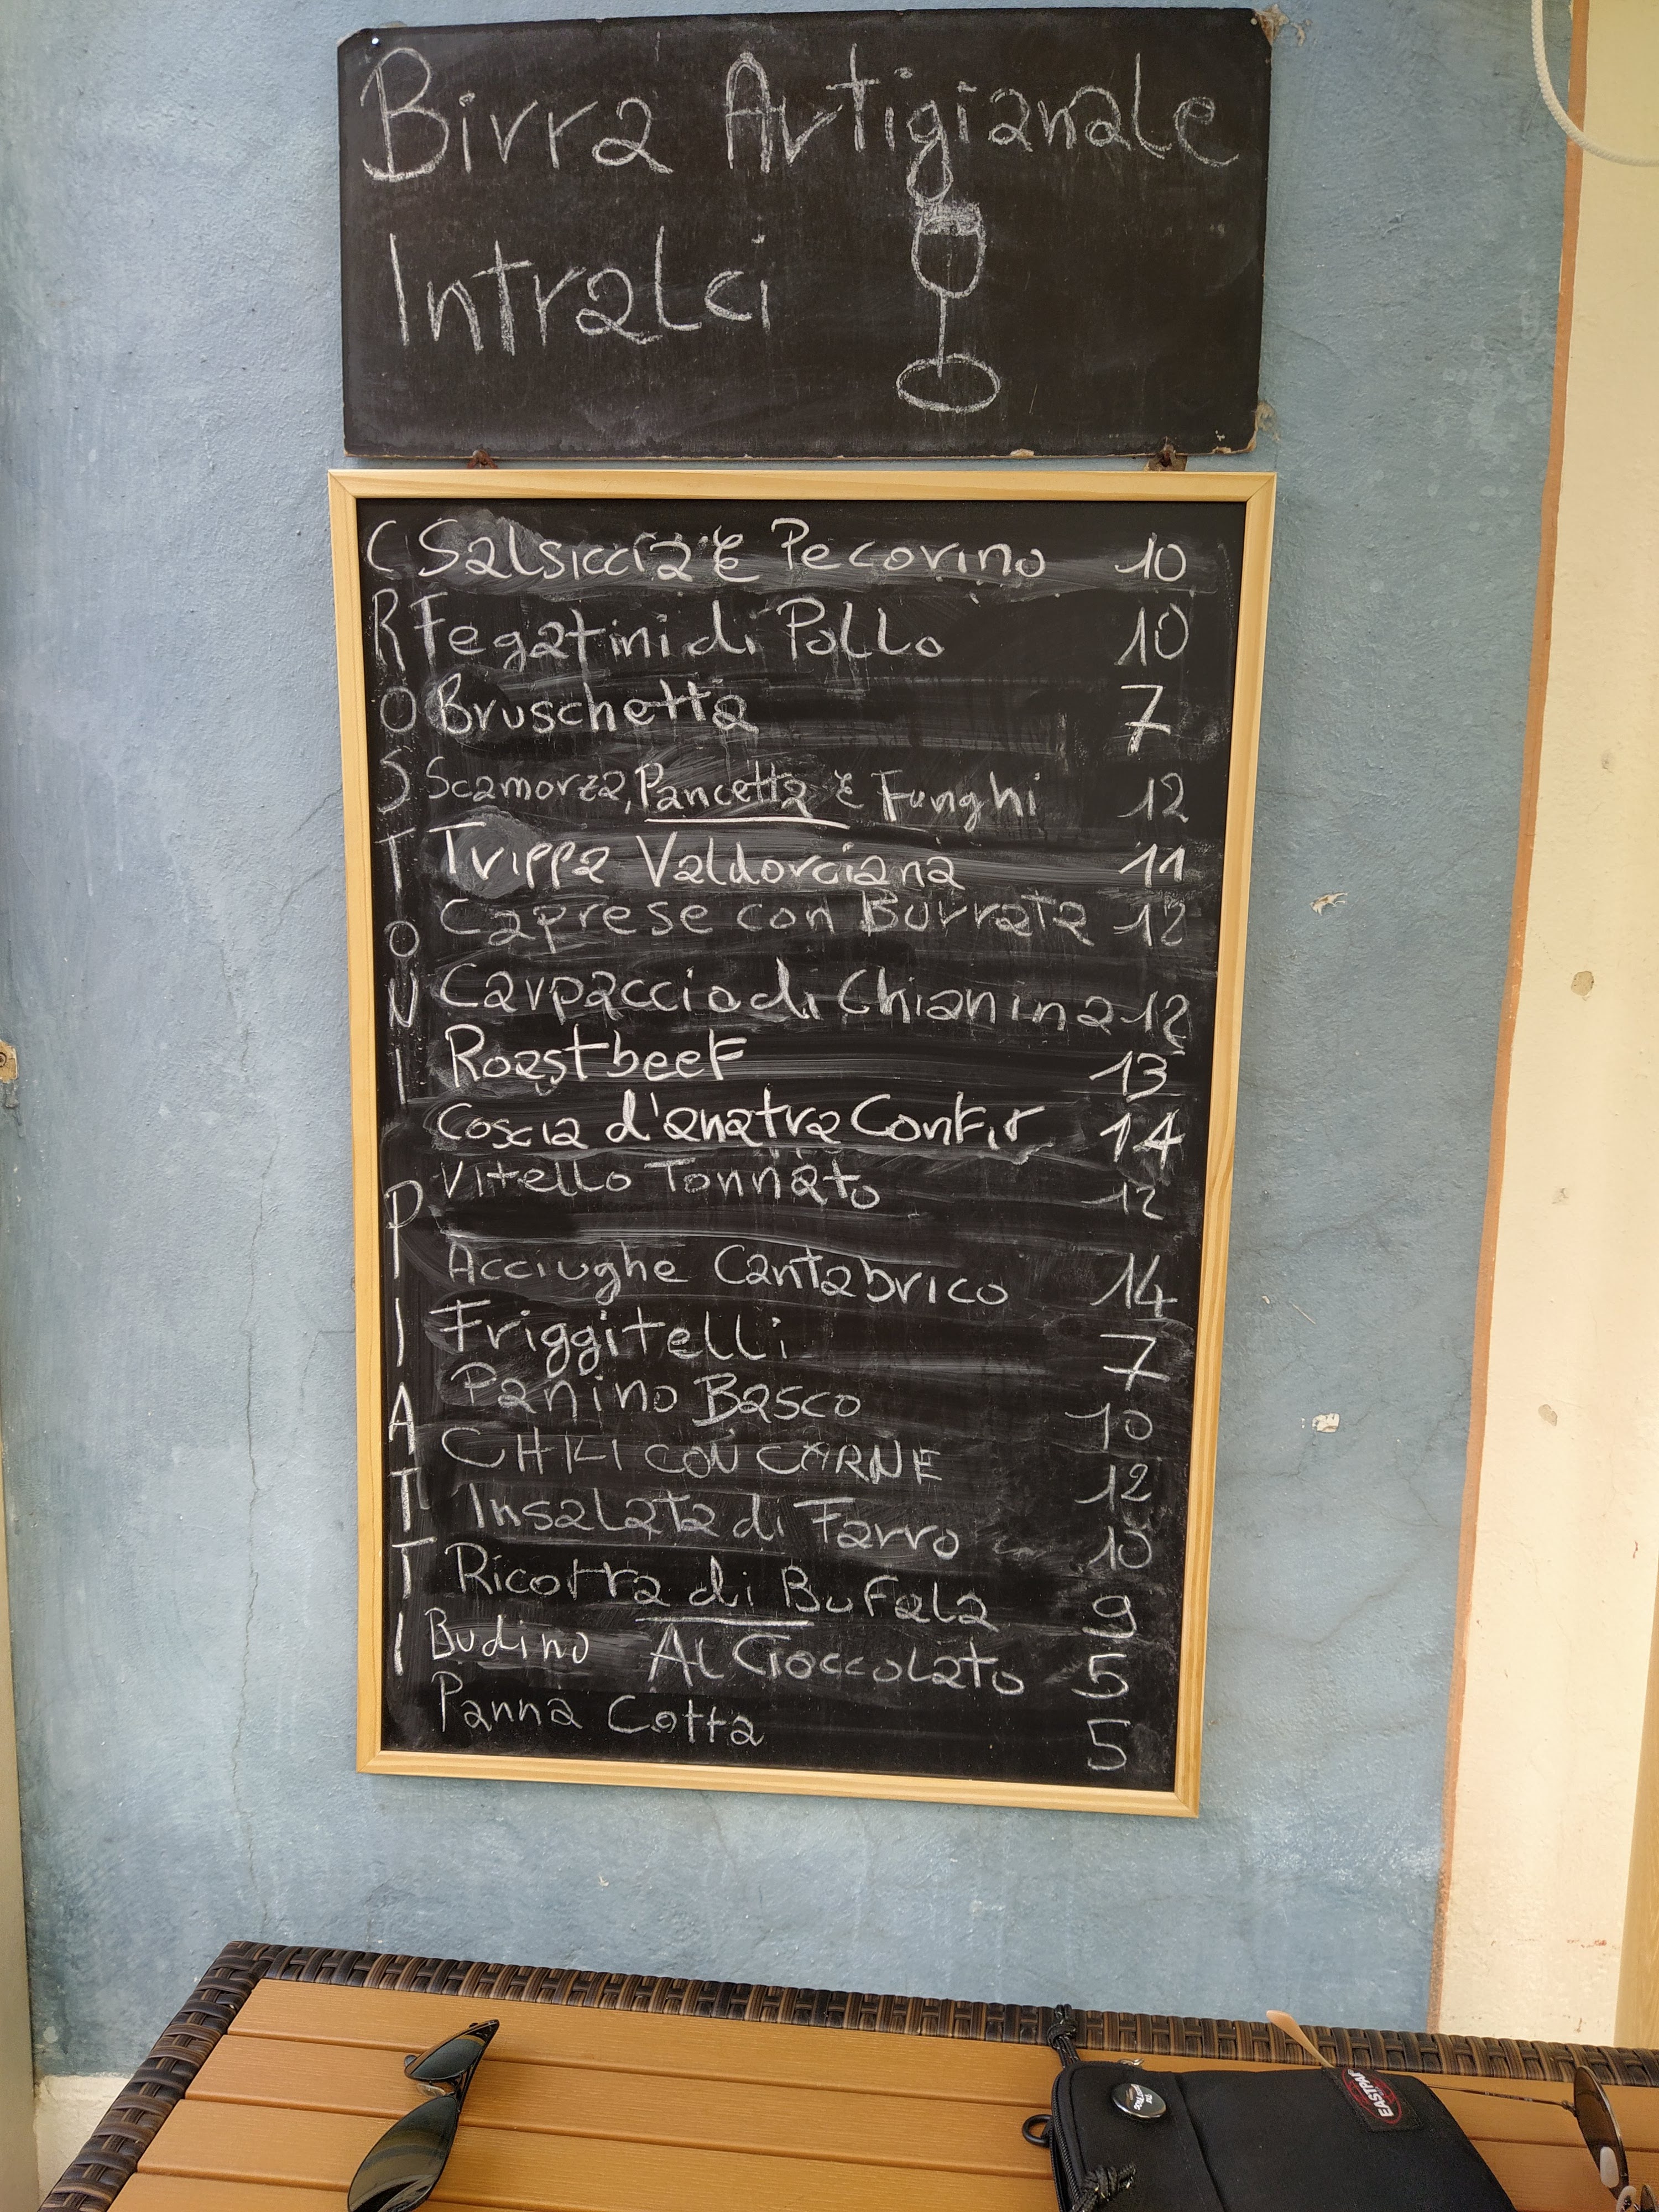 Birra Artigianale
Intralci
CROSTONI
Salsiccia e Pecorino 10
Fegatini di Pollo 10
Bruschetta 7
Scamorza, Pancetta e Funghi 12
Trippa Valdorciana 11
Caprese con Burrata 12
Carpaccio di Chianina 12
Roastbeef 13
Coscia d'anatra Confit 14
Vitello Tonnato 12
PIIATTI
Acciughe Cantabrico 14
Friggitelli 7
Panino Basco 10
CHILI CON CARNE 12
Insalata di Farro 10
Ricotta di Bufala 9
Budino Al Cioccolato 5
Panna Cotta 5
EASTPAK